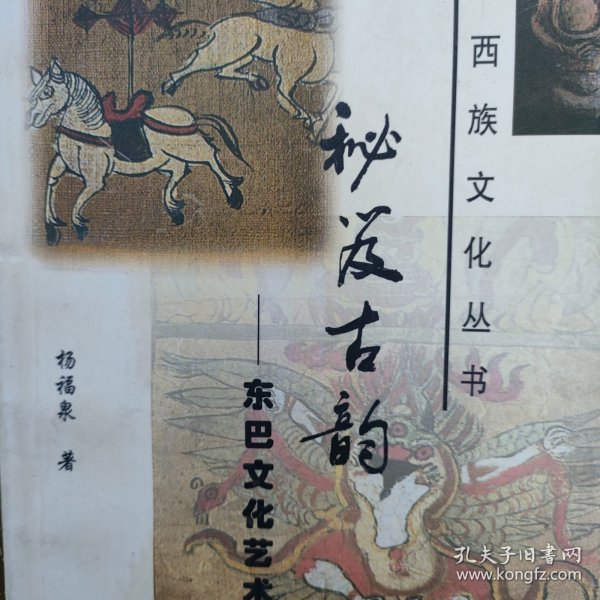 西族文化丛书
秘笈古韵
——东巴文化艺术
杨福泉 著
孔夫子旧書网
www.kongfz.com